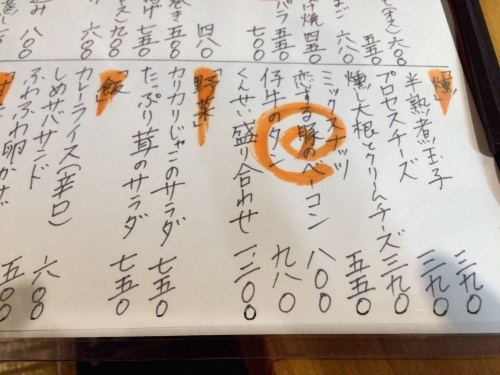 え(きも) 六〇〇
五五〇
六八〇
け焼 四五〇
パラ 七〇〇
四八〇
巻き 五五〇
げ 七五〇
九〇〇
六〇〇
込み 八〇〇
「燻」
半熟煮玉子 三九〇
プロセスチーズ 三九〇
燻し大根とクリームチーズ 三九〇
ミックスナッツ 五五〇
恋する豚のベーコン 八〇〇
仔牛のタン 九八〇
くんせい盛り合わせ 一、二〇〇
「野菜」
カリカリじゃこのサラダ 七五〇
たっぷり茸のサラダ 七五〇
「飯」
カレーライス(辛口)
しめサバサンド 六〇〇
ふわふわ卵かけ 五五〇